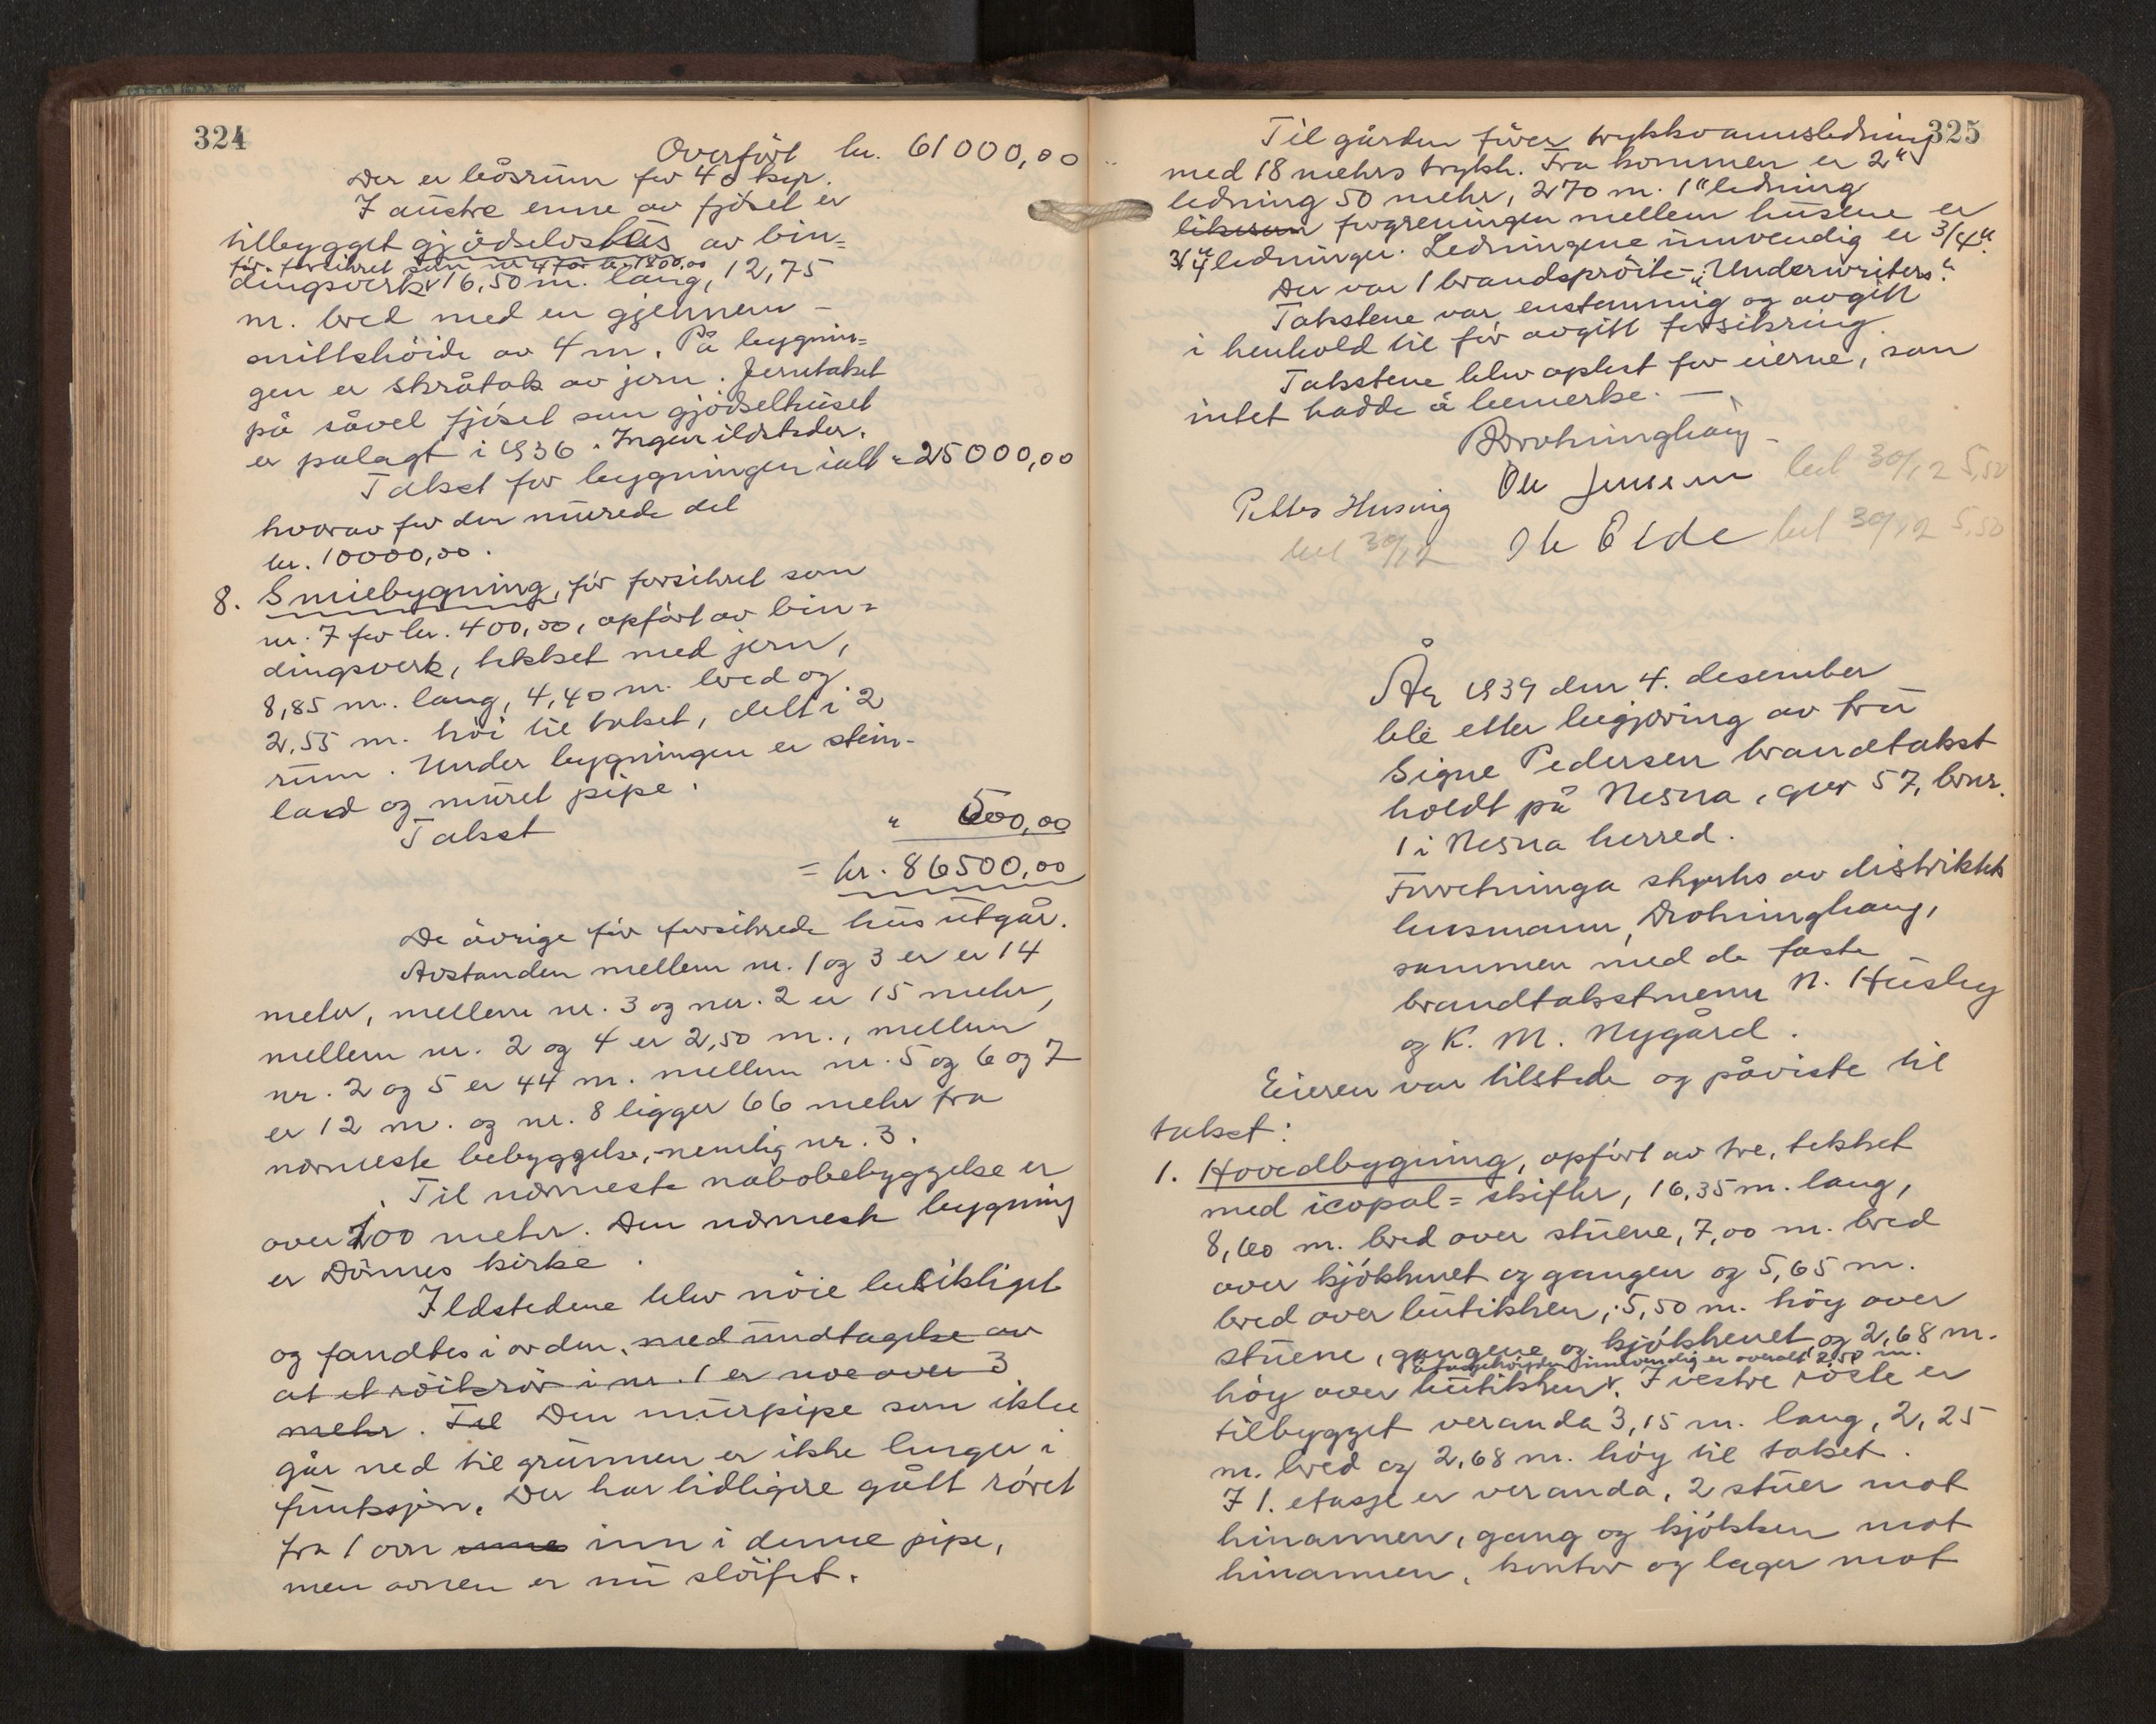 324
Overført kr. 61000,00
Der er båsrum for 40 kyr.
I austre enne av fjøset er
tilbygget gjødselvskås av bin=
før forsikret som nr 4 for kr. 1800,00
dingsverk 16,50 m. lang, 12,75
m. bred med en gjennem-
snittshöide av 4 m. På bygnin=
gen er skråtak av jern. Jerntaket
på såvel fjöset som gjödselhuset
er pålagt i 1936. Ingen ildsteder.
Takst for bygningen ialt " 25000,00
hvorav for den murede del
kr. 10000,00.
8. Smiebygning, för forsikret som
nr. 7 for kr. 400,00, opført av bin=
dingsverk, tekket med jern,
8,85 m. lang, 4,40 m. bred og
2,55 m. höi til taket, delt i 2
rum. Under bygningen er stein-
lad og muret pipe.
Takst " 500,00
= kr. 86500,00
De övrige för forsikrede hus utgår.
Avstanden mellem nr. 1 og 3 er er 14
meter, mellem nr. 3 og nr. 2 er 15 meter,
mellem nr. 2 og 4 er 2,50 m., mellem
nr. 2 og 5 er 44 m. mellem nr. 5 og 6 og 7
er 12 m. og nr. 8 ligger 66 meter fra
nærmeste bebyggelse, nemlig nr. 3.
Til nærmeste nabobebyggelse er
over 200 meter. Den nærmeste bygning
er Dönnes kirke.
Ildstedene blev nöie besiktiget
og fandtes i orden, med undtagelse av
at et röikrör i nr. 1 er noe over 3
meter. Til Den murpipe som ikke
går ned til grunnen er ikke lenger i
funksjon. Der har tidligere gått røret
fra 1 ovn inn i denne pipe,
men ovnen er nu slöifet.
325
Til gården fører trykkvannsledning
med 18 meters trykk. Fra kommen er 2"
ledning 50 meter, 270 m. 1" ledning
likesom forgreningen mellem husene er
3/4" ledninger. Ledningene innvendig er 3/4".
Der var 1 brandspröite - "Underwriters".
Takstene var enstemmig og avgitt
i henhold til för avgitt forsikring.
Takstene blev oplest for eierne, som
intet hadde å bemerke. —
Drohninghaug
Ole Jensen bet 30/12 5,50
Petter Husvig
bet 30/12
Ole Eide bet 30/12 5,50
År 1939 den 4. desember
ble etter begjæring av fru
Signe Pedersen brandtakst
holdt på Nesna, gnr 57, bnr.
1 i Nesna herred.
Forretninga styrtes av distriktets
lensmann, Drohninghaug,
sammen med de faste
brandtakstmenn N. Husby
og K. M. Nygård.
Eieren var tilstede og påviste til
takst:
1. Hovedbygning, opfört av tre, tekket
med icopal = skifter, 16,35 m. lang,
8,60 m. bred over stuene, 7,00 m. bred
over kjökkenet og gangen og 5,65 m.
bred over butikken, 5,50 m. høy over
stuene, gangene og kjökkenet og 2,68 m.
etasjehöyden innvendig er overalt 2,50 m.
høy over butikken. I vestre röste er
tilbygget veranda 3,15 m. lang, 2,25
m. bred og 2,68 m. høy til taket.
I 1. etasje er veranda, 2 stuer mot
hinannen, gang og kjökken mot
hinannen, kontor og lager mot